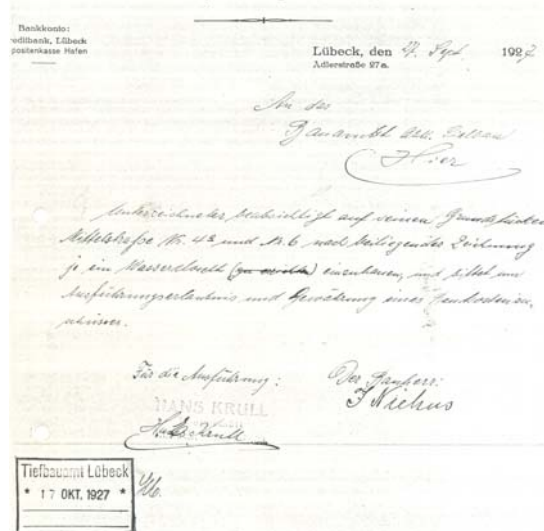 Bankkonto:
reditbank, Lübeck
positenkasse Hafen
Lübeck, den 27. Sept. 1927
Adlerstraße 27a.
An das
Bauamt
Hier
Unterzeichneter beabsichtigt auf seinen Grundstücken
Mittelstraße Nr. 4 und Nr. 6 nach beiliegender Zeichnung
je ein Wasserclosett einzubauen, und bittet um
Ausführungserlaubnis und Gewährung eines
Für die Ausführung: Der Bauherr:
HANS KRULL J Niehus
Hans Krull
Tiefbauamt Lübeck
* 17 OKT. 1927 *